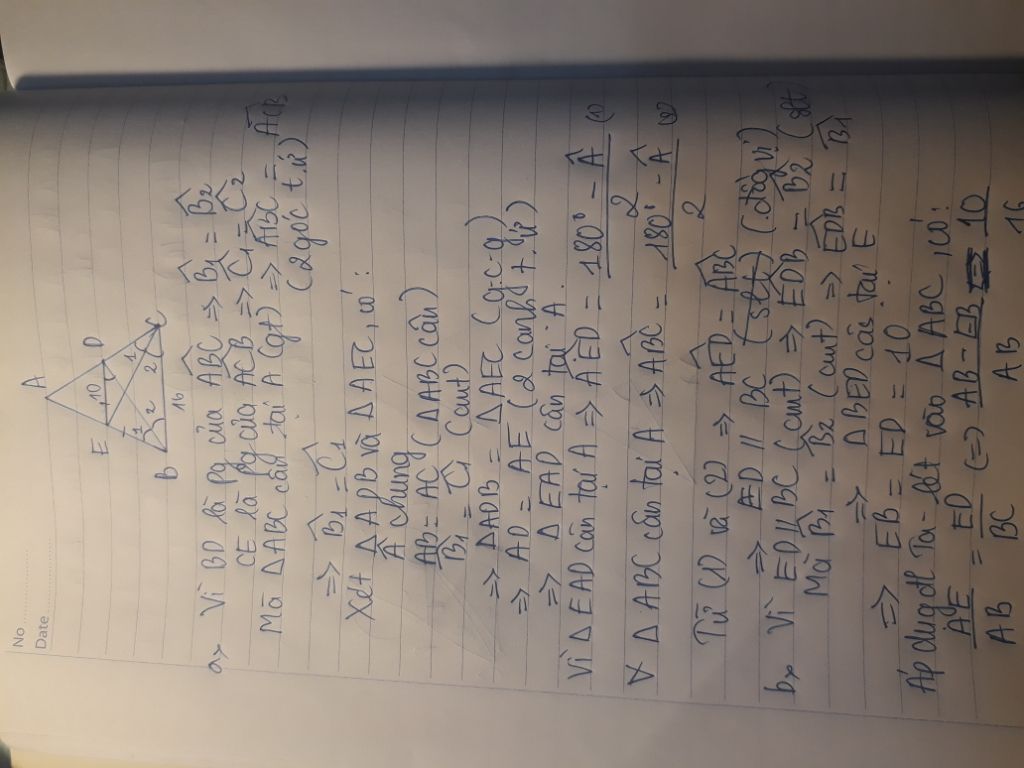 No
Date
A
E
10
D
1
1
2
2
B
C
16
a, Vì BD là pg của ABC^ => B1^ = B2^
CE là pg của ACB^ => C1^ = C2^
Mà Δ ABC cân tại A (gt) => ABC^ = ACB^
(2 góc t.ứ)
=> B1^ = C1^
Xét Δ ADB và Δ AEC, có:
A^ chung
AB = AC (Δ ABC cân)
B1^ = C1^ (cmt)
=> Δ ADB = Δ AEC (g.c.g)
=> AD = AE (2 cạnh t.ứ)
=> Δ EAD cân tại A
Vì Δ EAD cân tại A => AED^ = (180° - A^)/2 (1)
Δ ABC cân tại A => ABC^ = (180° - A^)/2 (2)
Từ (1) và (2) => AED^ = ABC^
=> ED // BC (slt) (đồng vị)
b, Vì ED // BC (cmt) => EDB^ = B2^ (slt)
Mà B1^ = B2^ (cmt) => EDB^ = B1^
=> Δ BED cân tại E
=> EB = ED = 10
Áp dụng đl Ta-lét vào Δ ABC, có:
AE/AB = ED/BC <=> (AB - EB)/AB = 10/16